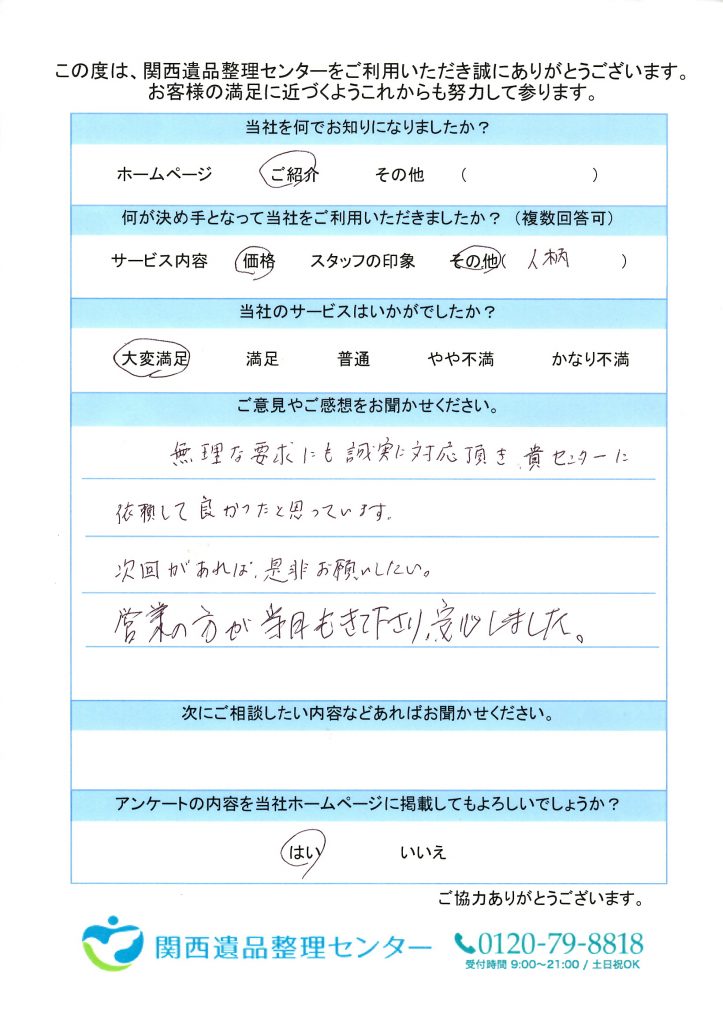 この度は、関西遺品整理センターをご利用いただき誠にありがとうございます。
お客様の満足に近づくようこれからも努力して参ります。
当社を何でお知りになりましたか？
ホームページ ご紹介 その他 （ ）
何が決め手となって当社をご利用いただきましたか？（複数回答可）
サービス内容 価格 スタッフの印象 その他（ 人柄 ）
当社のサービスはいかがでしたか？
大変満足 満足 普通 やや不満 かなり不満
ご意見やご感想をお聞かせください。
無理な要求にも誠実に対応頂き、貴センターに
依頼して良かったと思っています。
次回があれば、是非お願いしたい。
営業の方が当日もきて下さり、安心しました。
次にご相談したい内容などあればお聞かせください。
アンケートの内容を当社ホームページに掲載してもよろしいでしょうか？
はい いいえ
ご協力ありがとうございます。
関西遺品整理センター 0120-79-8818
受付時間 9:00～21:00 / 土日祝OK